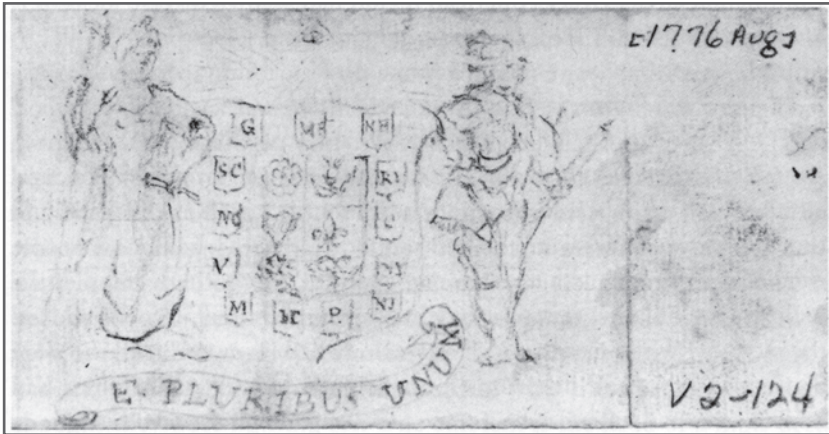 [1776 Aug]
G
NH
SC
RI
NC
V
M
P
NJ
E PLURIBUS UNUM
V2-124